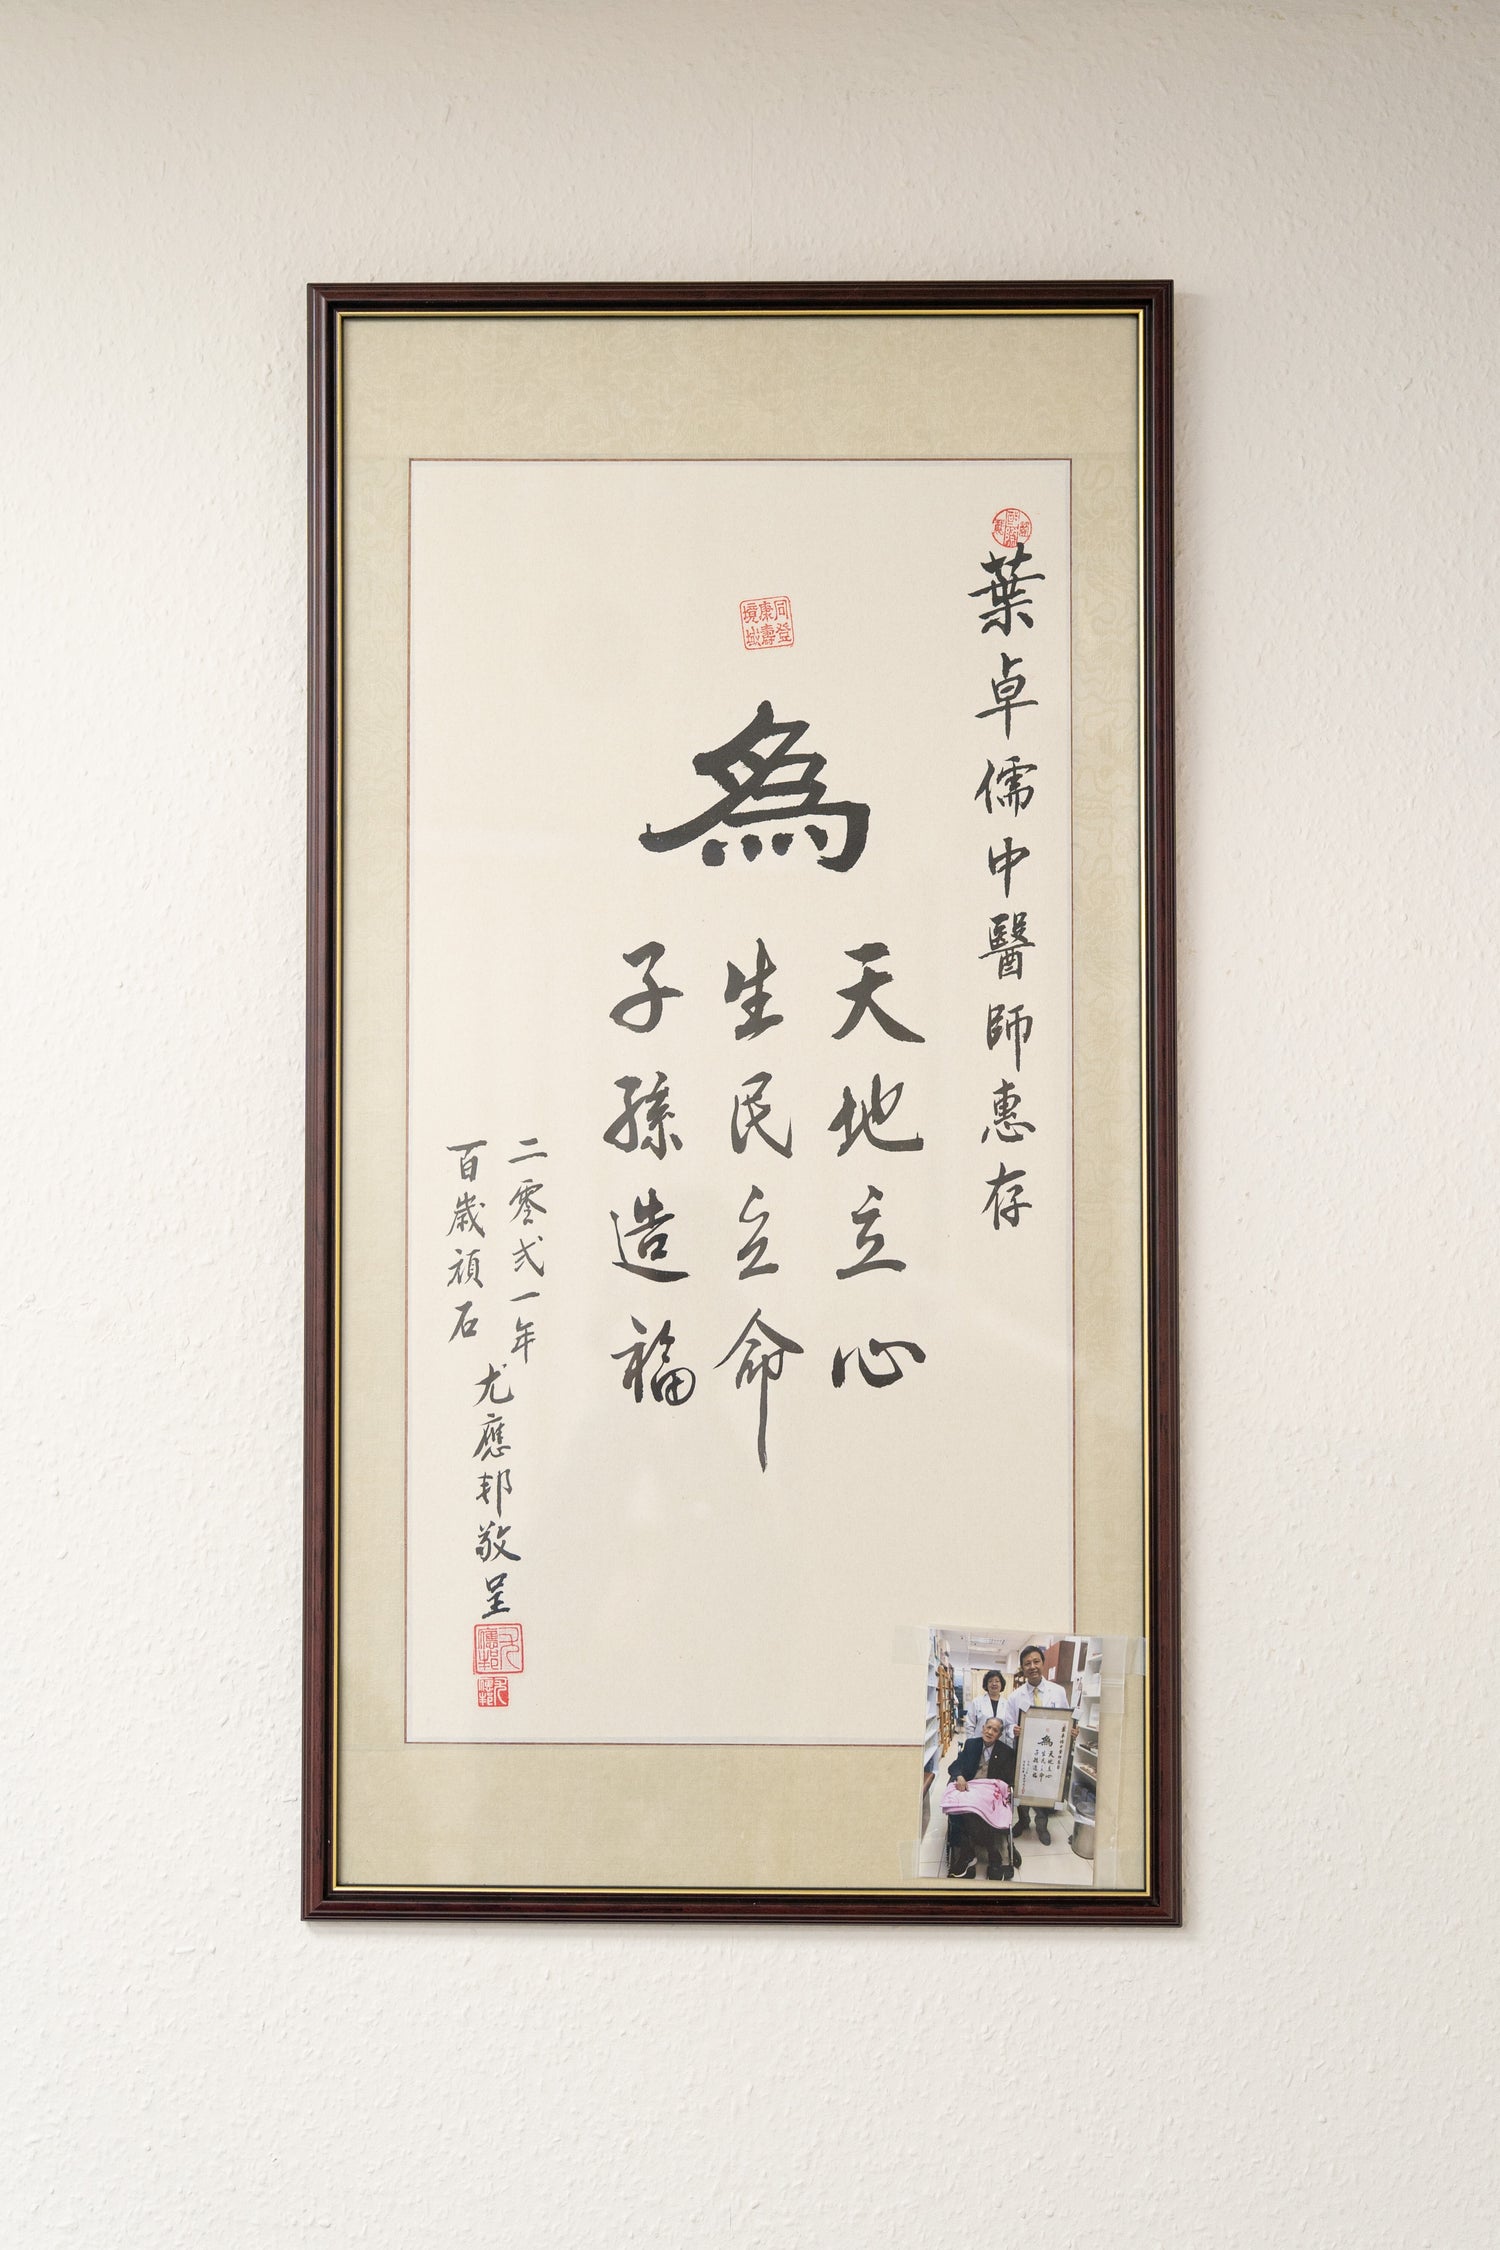 葉卓儒中醫師惠存
同登
康壽
境域
為
天地立心
生民立命
子孫造福
二零弍一年
百歲頑石
尤應邦敬呈
尤應邦
尤應邦